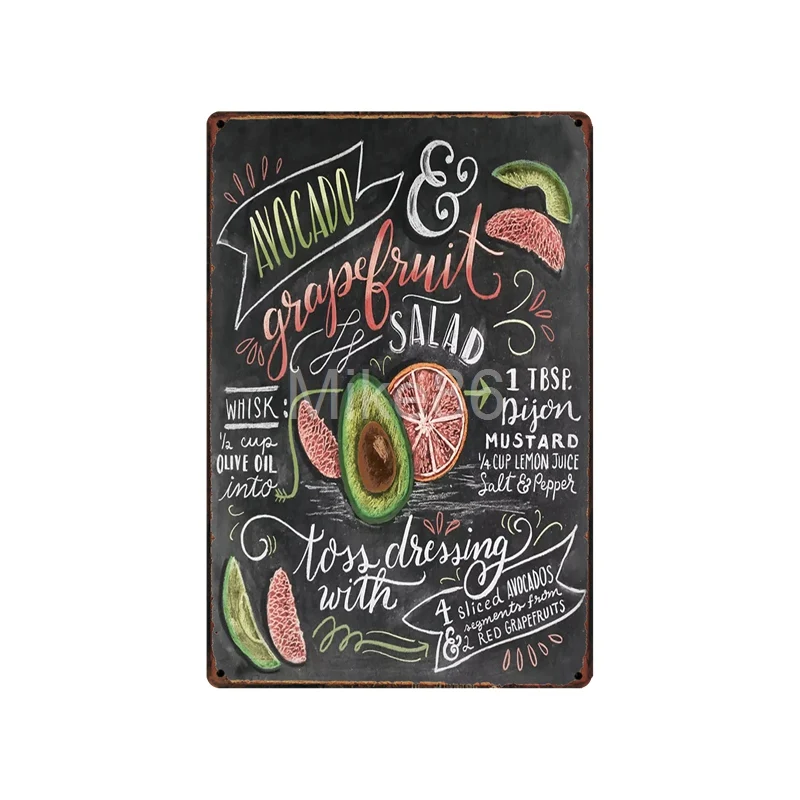 AVOCADO
&
grapefruit
SALAD
WHISK:
½ cup
OLIVE OIL
into
1 TBSP.
Dijon
MUSTARD
¼ CUP LEMON JUICE
Salt & Pepper
toss dressing
with
4 sliced AVOCADOS
segments from
& 2 RED GRAPEFRUITS
Mike86